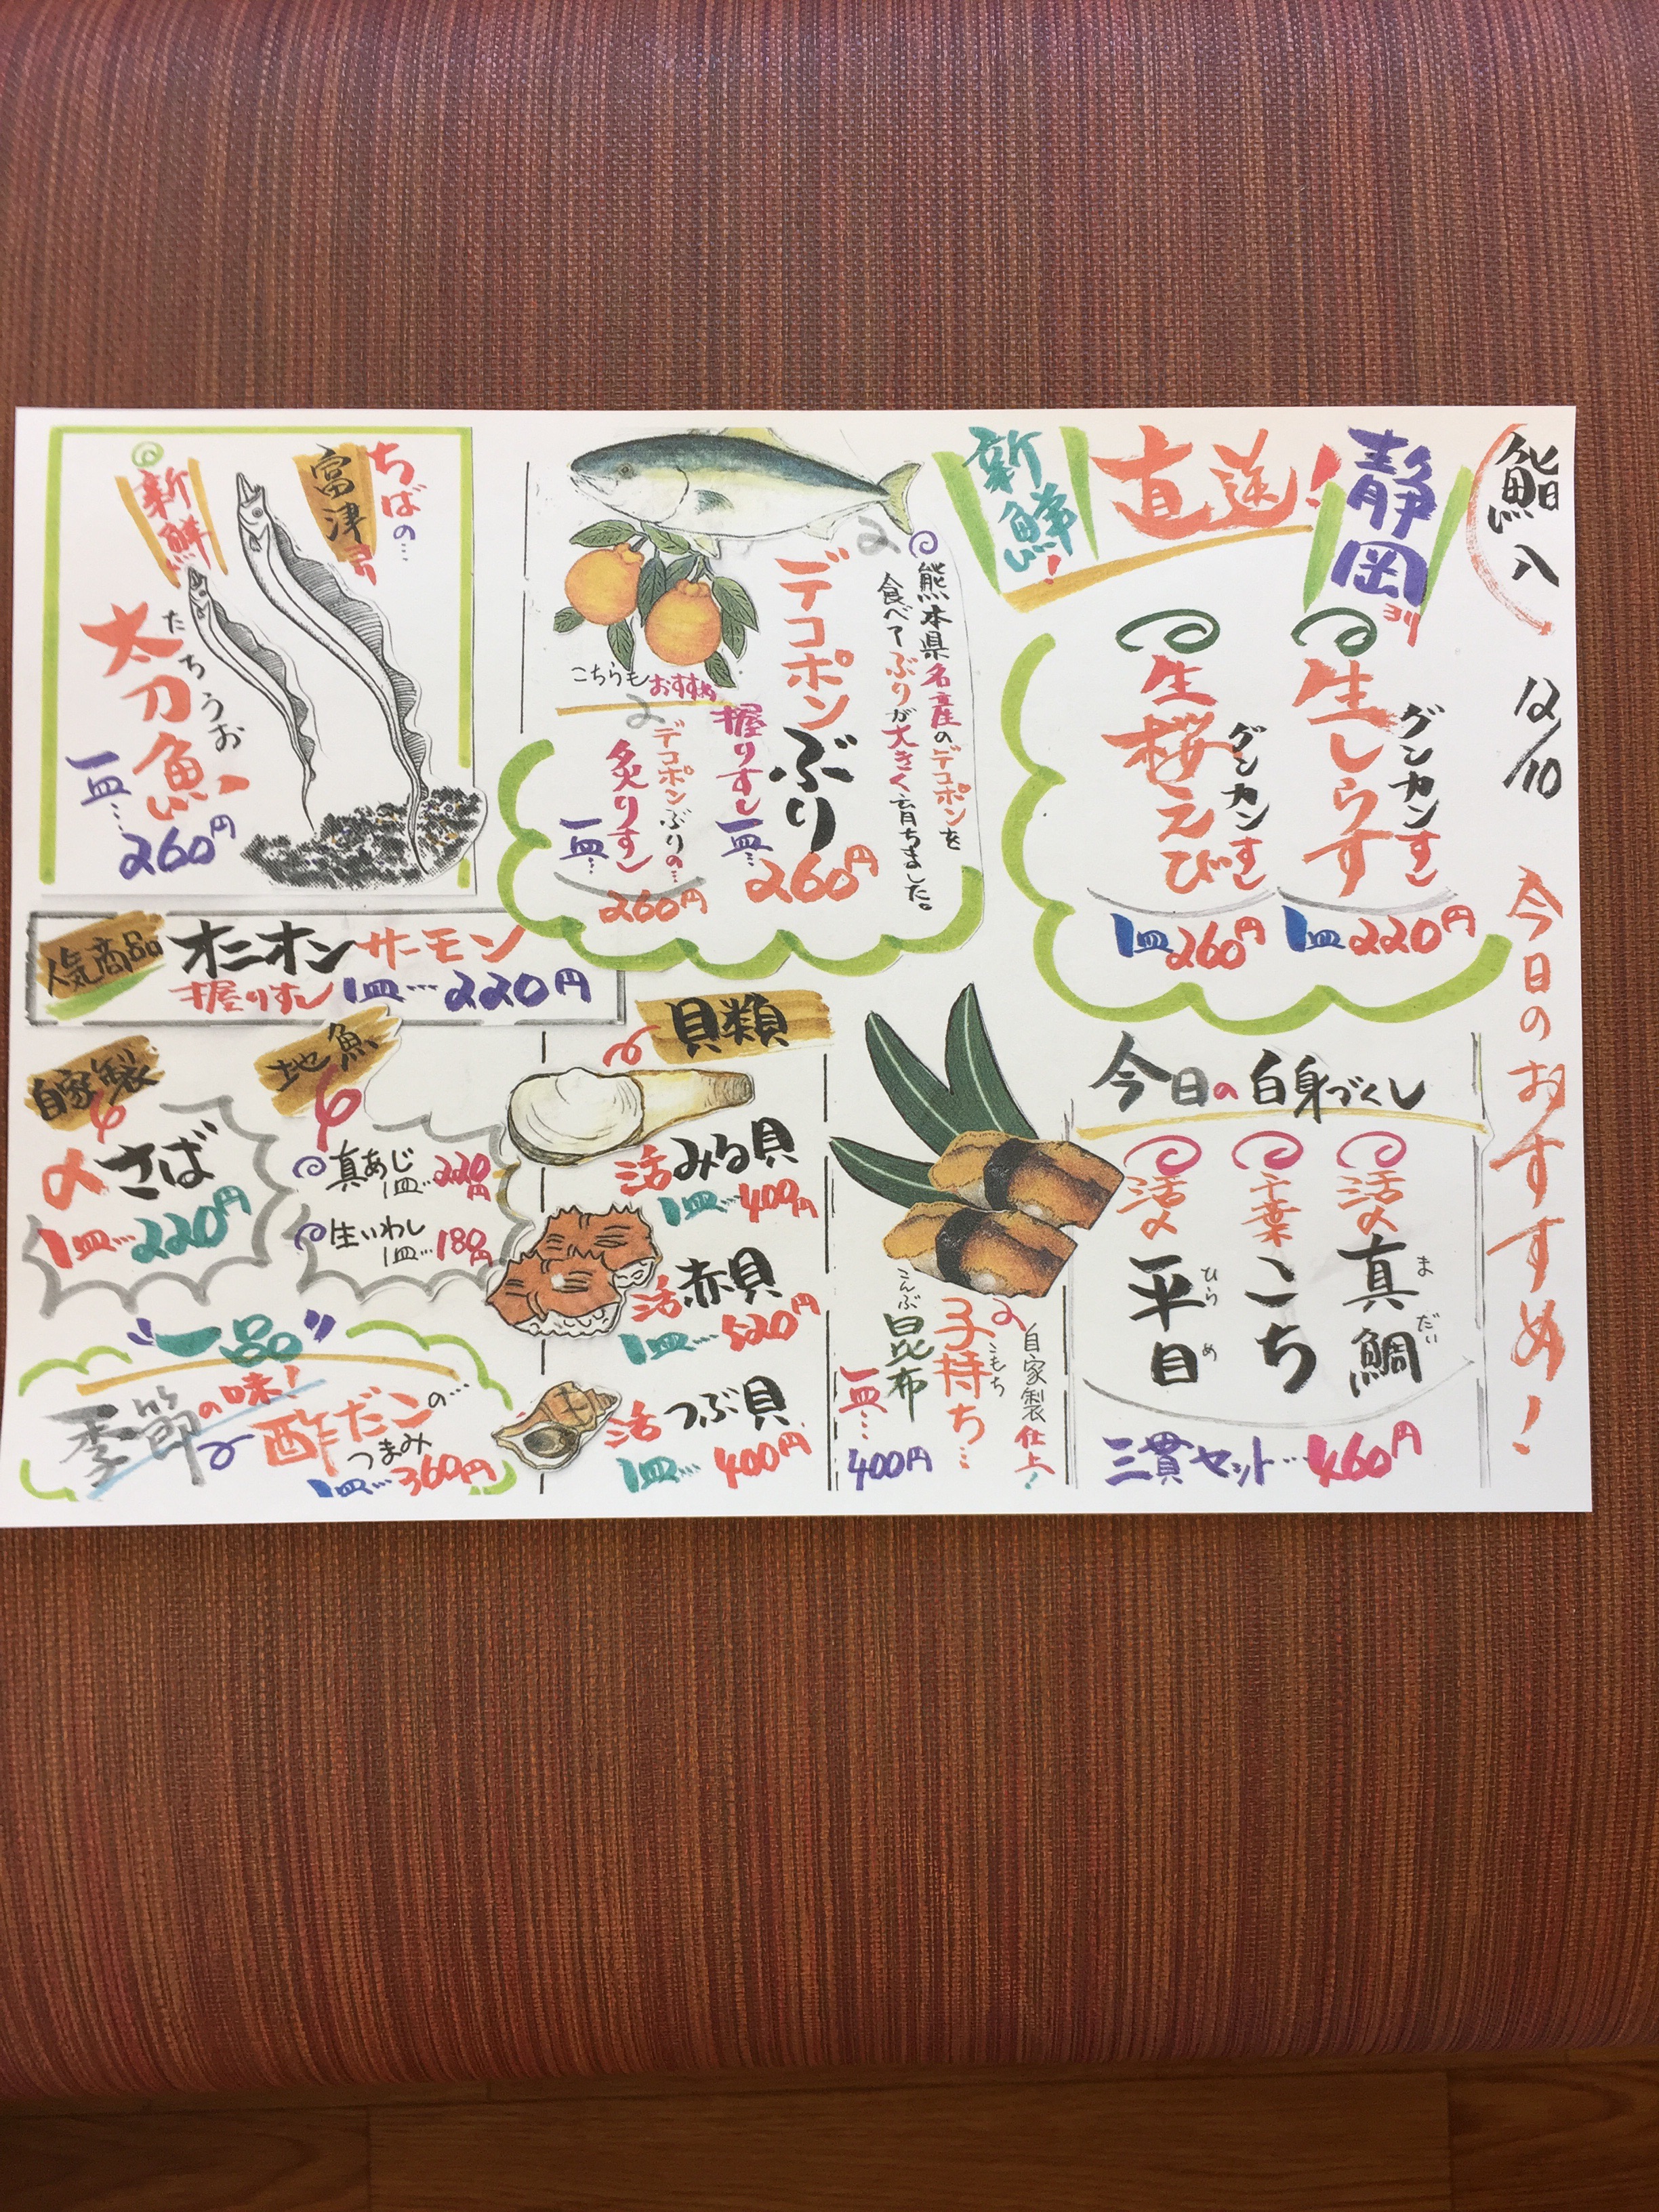 鮨八 12/10 今日のおすすめ!
静岡ヨリ
直送!
新鮮!
生しらす
グンカンすし
1皿220円
生桜えび
グンカンすし
1皿260円
熊本県名産のデコポンを
食べてぶりが大きく育ちました。
デコポンぶり
握りすし一皿…260円
こちらもおすすめ
デコポンぶりの…
炙りすし
一皿…260円
ちばの…
富津ヨリ
新鮮
太刀魚
たちうお
一皿…260円
人気商品
オニオンサーモン
握りすし 1皿…220円
今日の白身づくし
活〆真鯛
まだい
千葉こち
活〆平目
ひらめ
三貫セット…460円
自家製仕上!
子持ち…
こもち
昆布
こんぶ
一皿…400円
貝類
活みる貝
1皿…400円
活赤貝
1皿…520円
活つぶ貝
1皿…400円
地魚
真あじ
1皿…220円
生いわし
1皿…180円
自家製
〆さば
1皿…220円
"一品"
季節の味!
酢だこの…
つまみ
1皿…360円